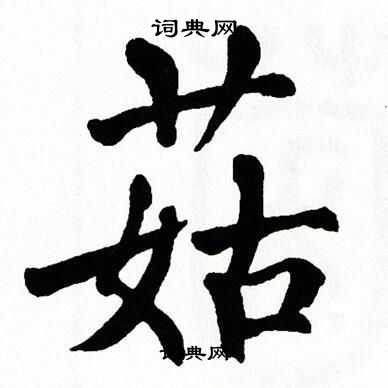 词典网
菇
词典网